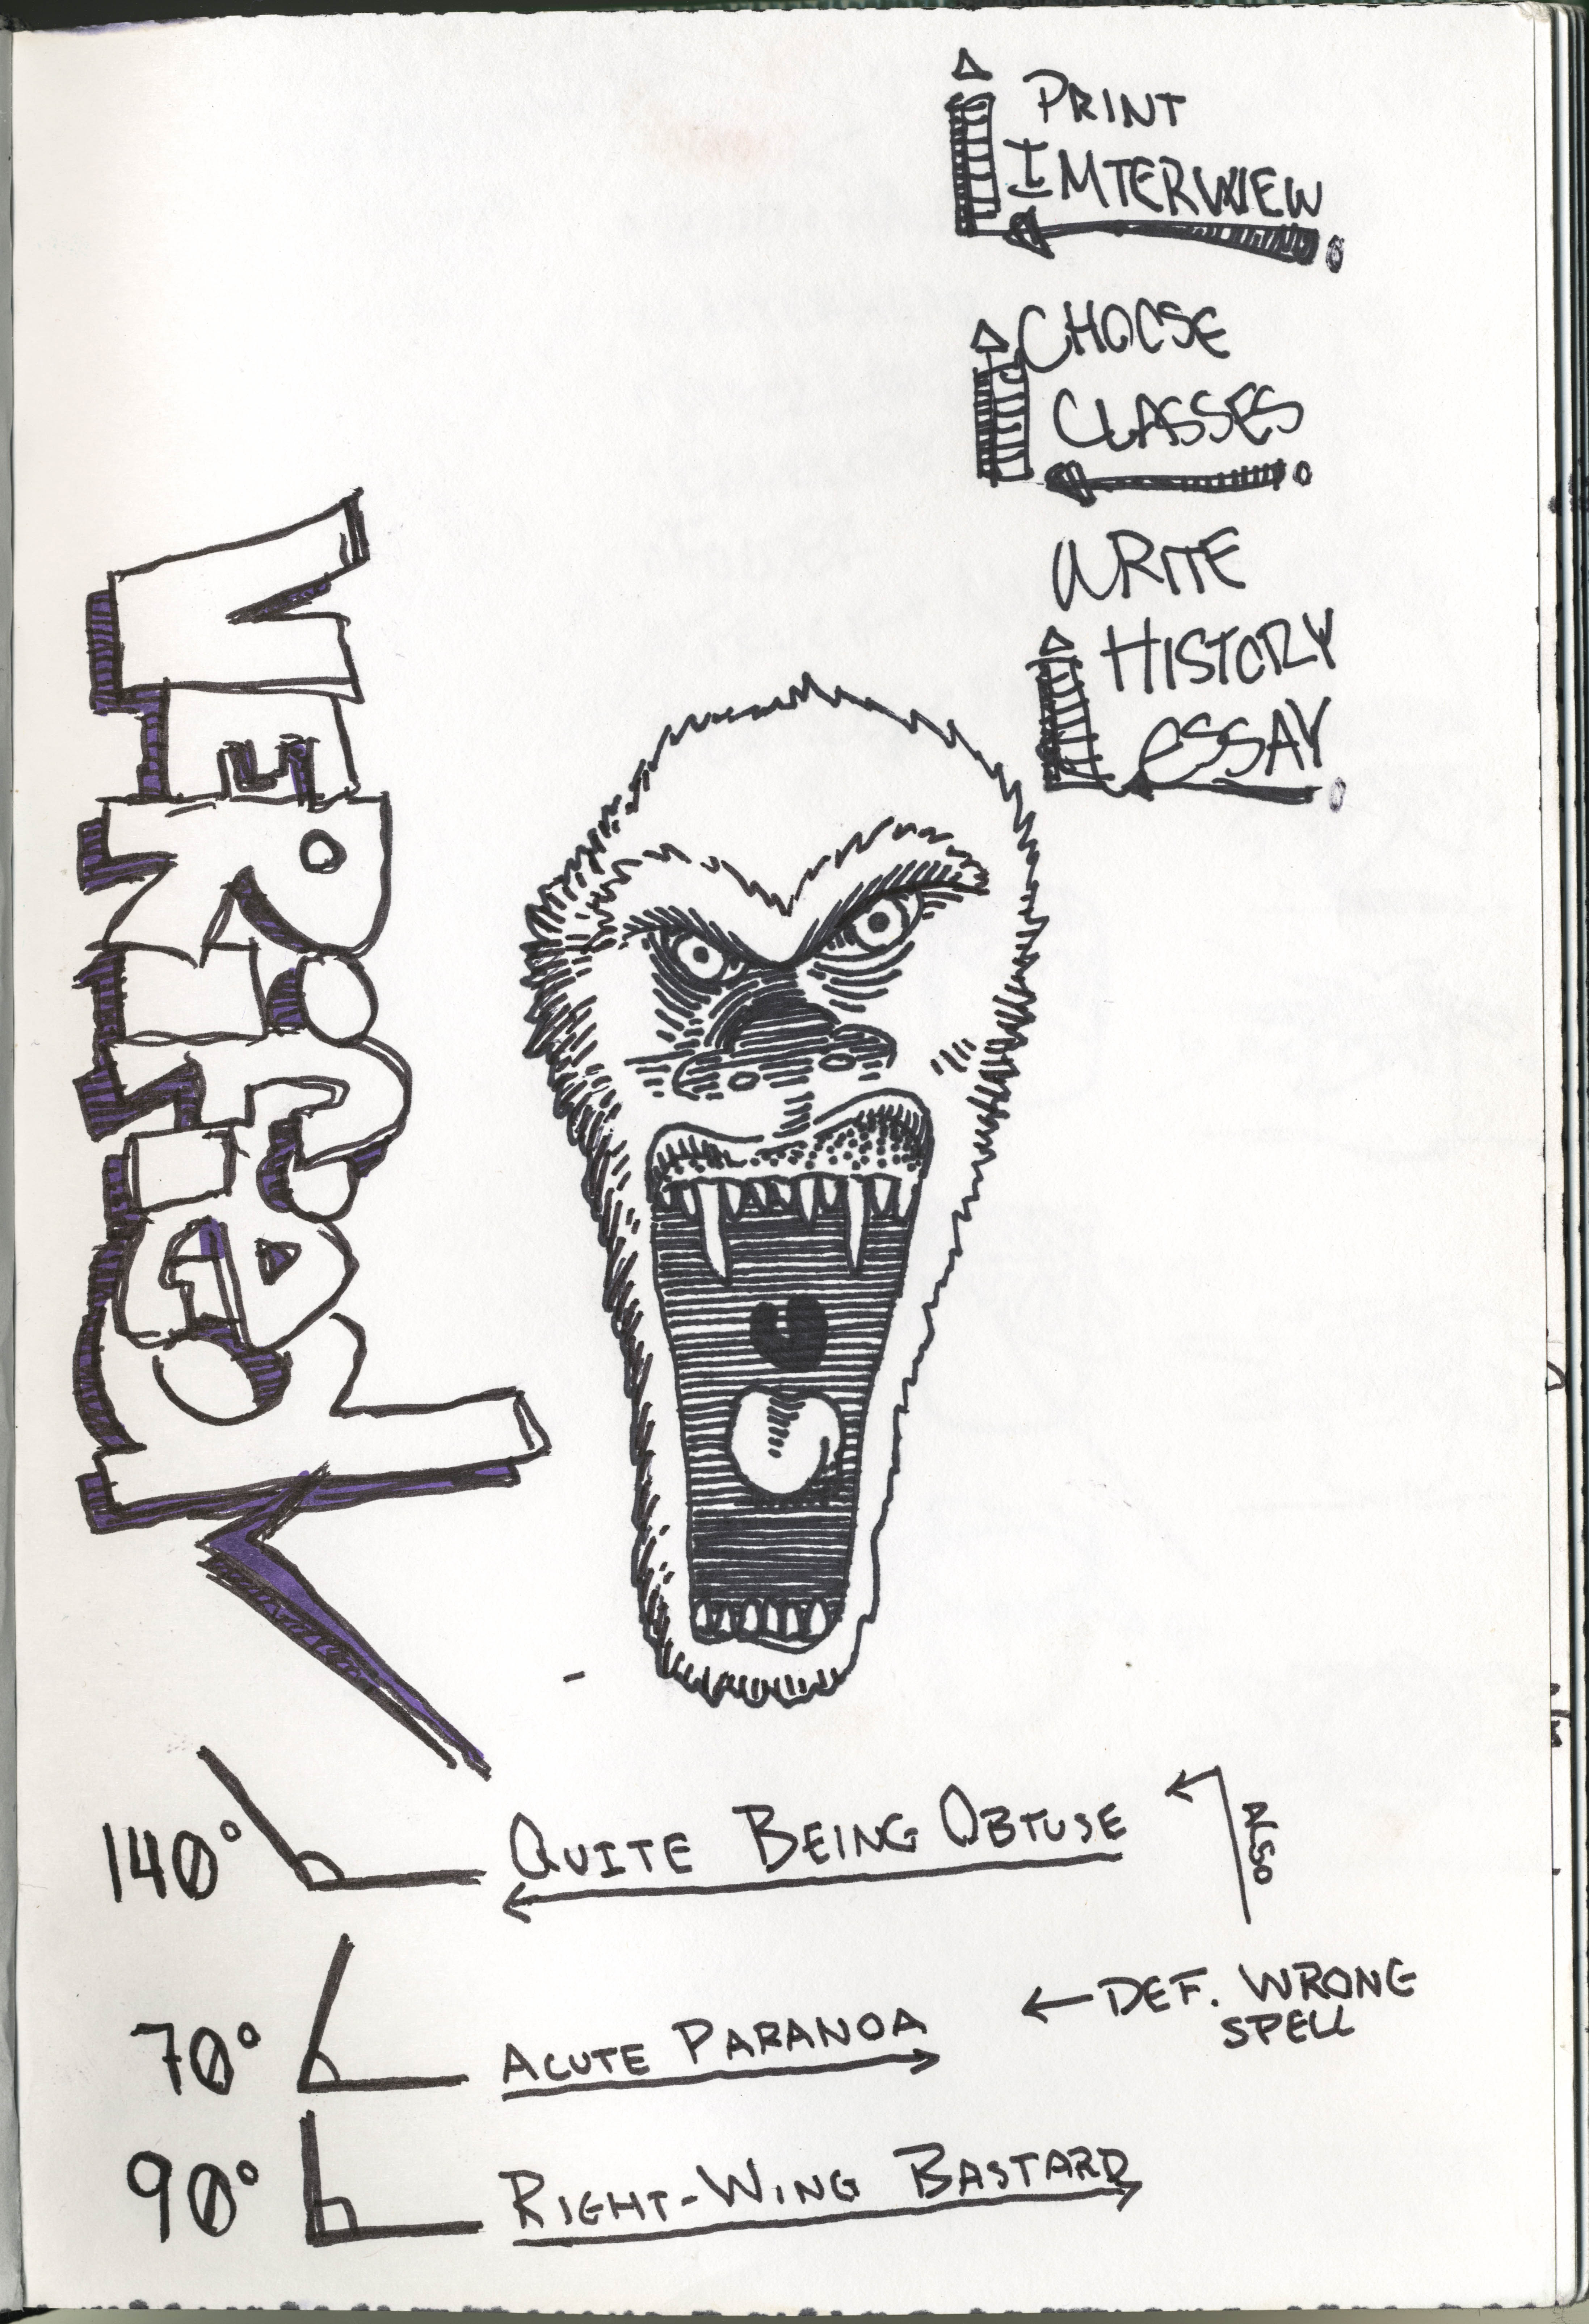 PRINT
INTERVIEW
CHOOSE
CLASSES
WRITE
HISTORY
ESSAY
VERified
140° QUITE BEING OBTUSE
ALSO
70° ACUTE PARANOA
DEF. WRONG
SPELL
90° RIGHT-WING BASTARD